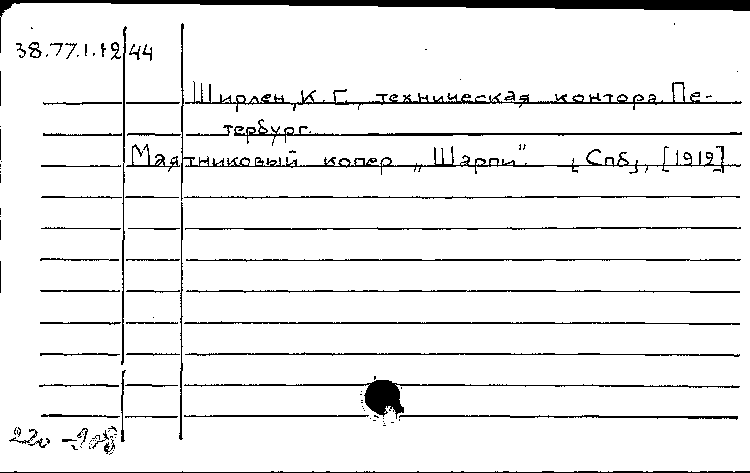 38.77.1.12/44
Ширлен, К. Г., техническая контора. Пе-
тербург.
Маятниковый копер „Шарпи". [Спб], [1912]
220-908